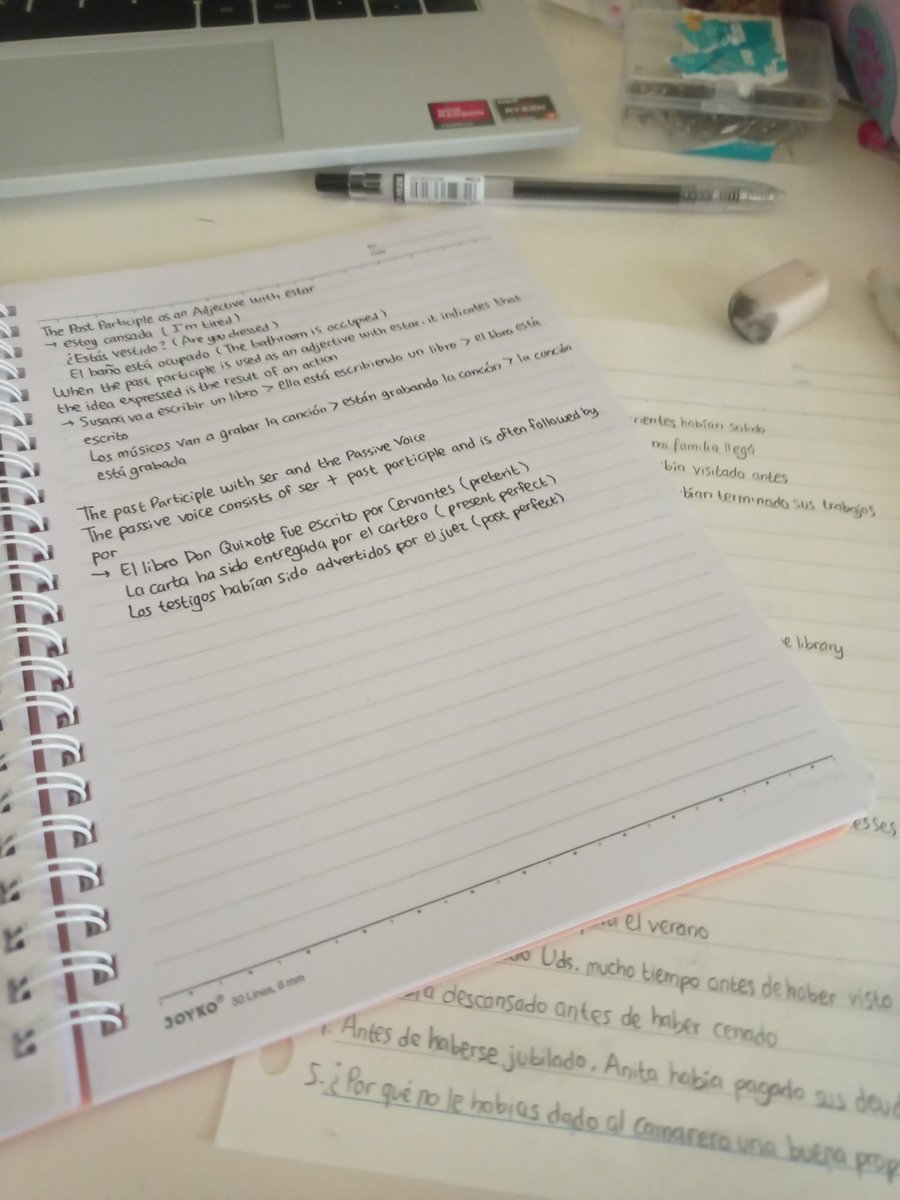 The Past Participle as an Adjective with estar
→ estoy cansada (I'm tired)
¿Estás vestido? (Are you dressed)
El baño está ocupado (The bathroom is occupied)
When the past participle is used as an adjective with estar, it indicates that
the idea expressed is the result of an action
→ Susana va a escribir un libro > Ella está escribiendo un libro > el libro está
escrito
Los músicos van a grabar la canción > están grabando la canción > la canción
está grabada
The past Participle with ser and the Passive Voice
The passive voice consists of ser + past participle and is often followed by
por
→ El libro Don Quixote fue escrito por Cervantes (preterit)
La carta ha sido entregada por el cartero (present perfect)
Los testigos habían sido advertidos por el juez (past perfect)
JOYKO® 30 Lines, 6 mm
habían salido
mi familia llegó
visitado antes
terminado sus trabajos
library
el verano
Uds. mucho tiempo antes de haber visto
descansado antes de haber cenado
Antes de haberse jubilado, Anita había pagado sus
5. ¿Por qué no le habías dado al camarero una buena
RADEON
RYZEN